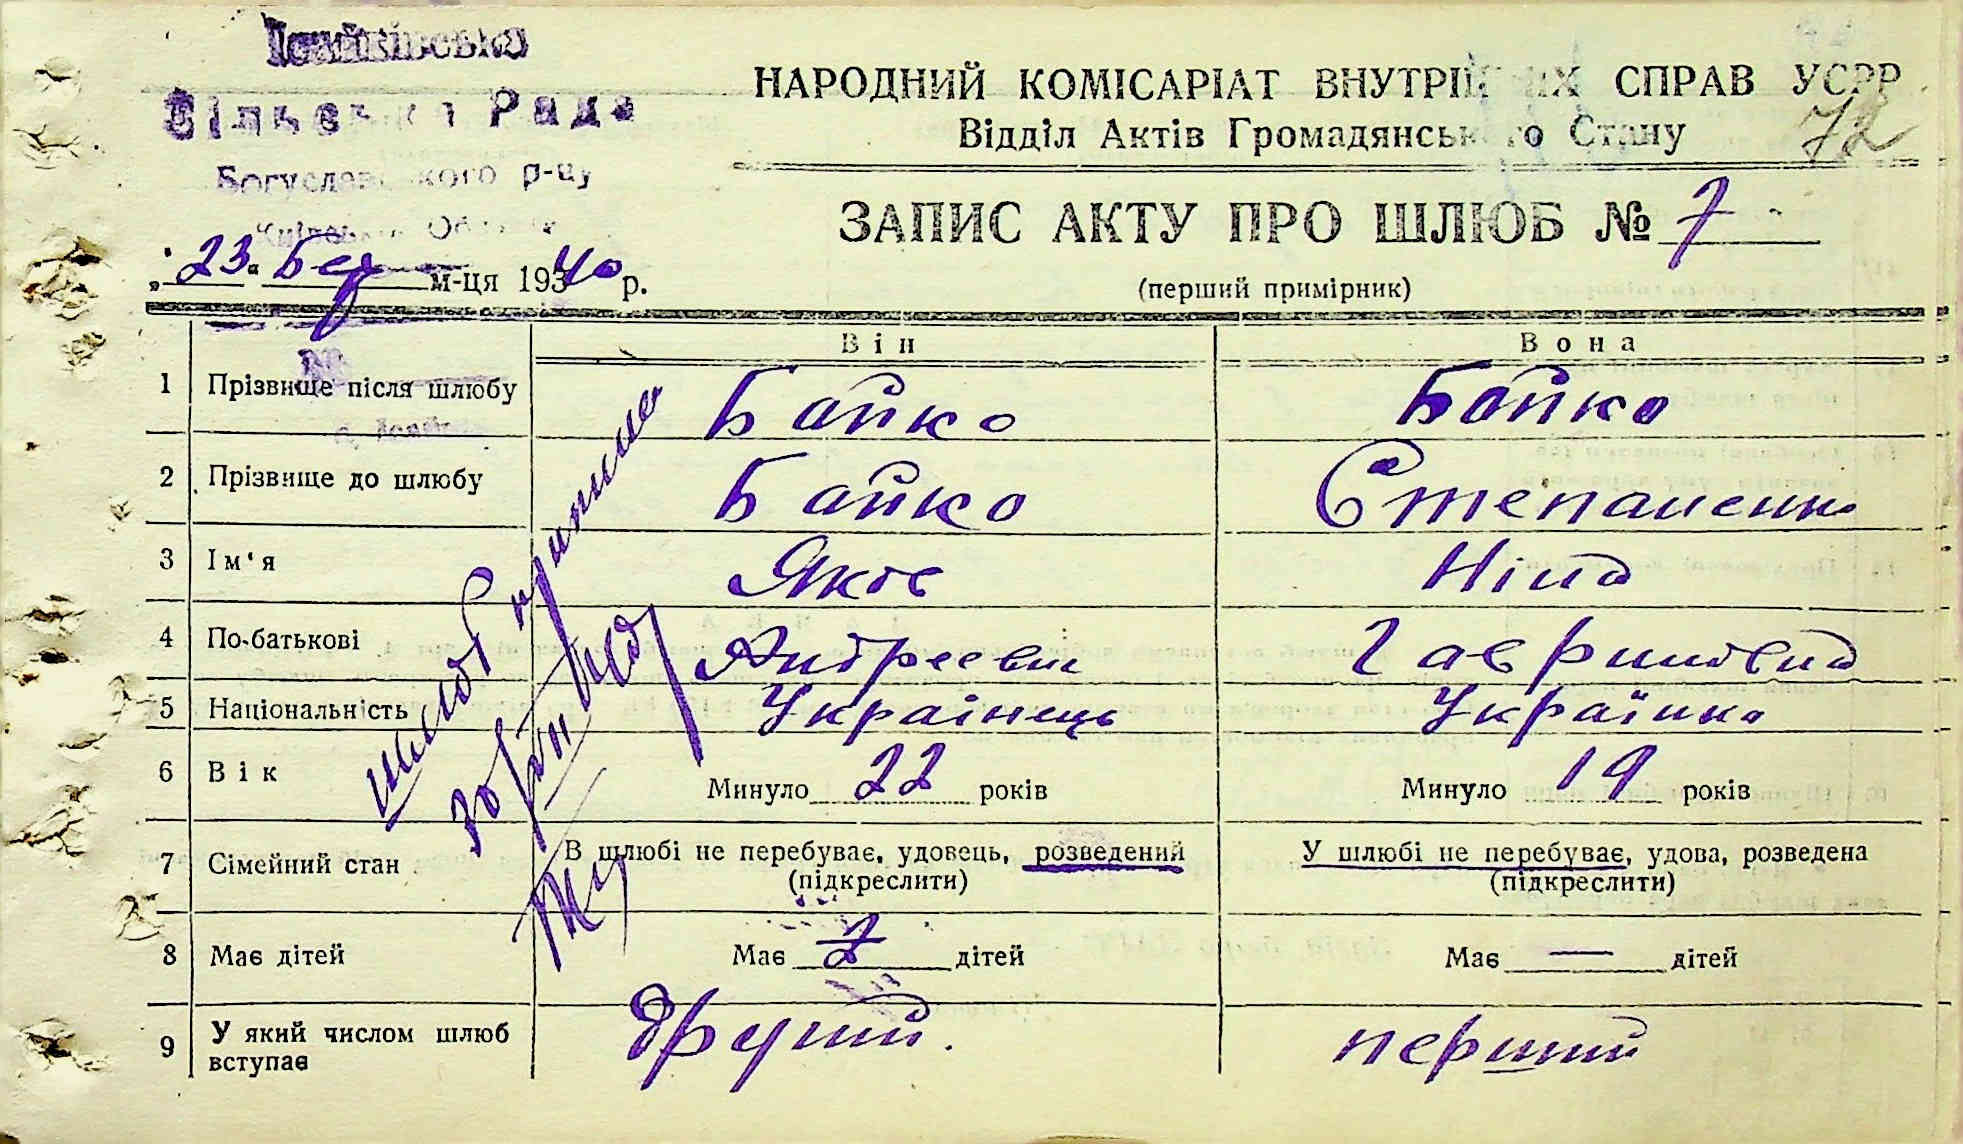 Ісайківська
Сільська Рада
Богуславського р-ну
Київської Області
НАРОДНИЙ КОМІСАРІАТ ВНУТРІШНІХ СПРАВ УСРР
Відділ Актів Громадянського Стану
72
ЗАПИС АКТУ ПРО ШЛЮБ № 7
(перший примірник)
„23“ Бер м-ця 1940 р.
Він Вона
1 Прізвище після шлюбу Бойко Бойко
2 Прізвище до шлюбу Бойко Степаненко
3 Ім'я Яков Ніна
4 По-батькові Андреевич Гавриловна
5 Національність Українець Українка
6 Вік Минуло 22 років Минуло 19 років
7 Сімейний стан В шлюбі не перебуває, удовець, розведений У шлюбі не перебуває, удова, розведена
(підкреслити) (підкреслити)
8 Має дітей Має дітей Має — дітей
9 У який числом шлюб вступає другий. перший
шлюб